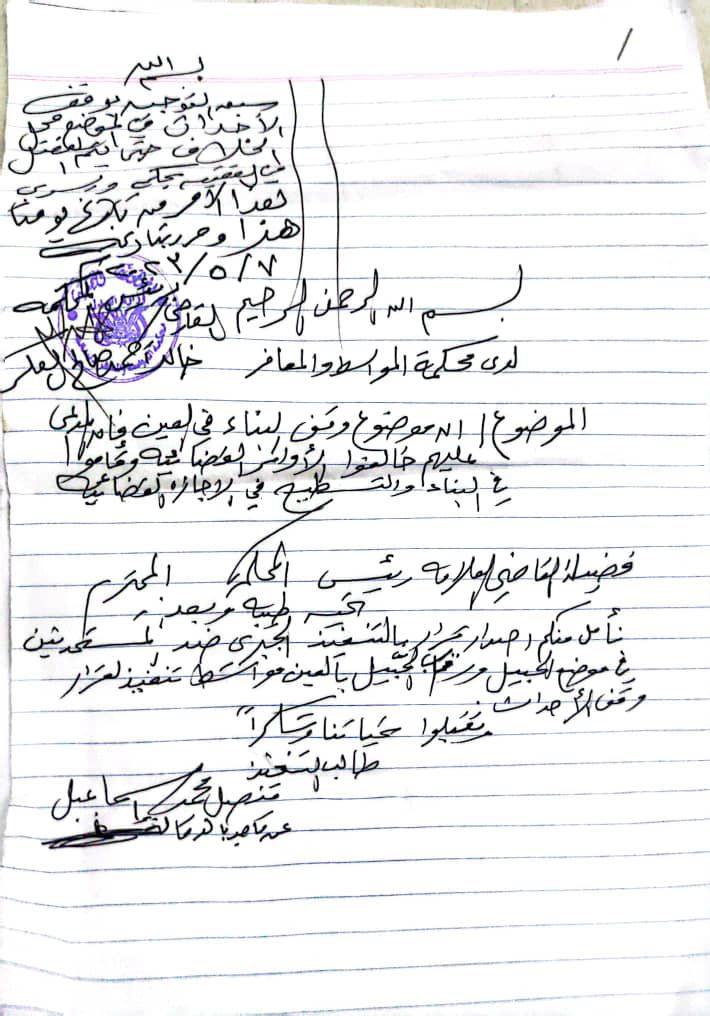 بسم الله
سبق التوجيه بوقف
الأحداث في الموضع محل
الخلاف حتى يتم الفصل
في القضية بحكم
هذا الأمر من تاريخ يومنا
هذا وحرر بتاريخ
٢٣/٥/٧
القاضي رئيس المحكمة
خالد محمد صالح
بسم الله الرحمن الرحيم
لدى محكمة المواسط والمعافر
الموضوع / الموضوع وقف البناء في العين قام المدعى
عليهم خالفوا الأوامر القضائية وقاموا
في البناء والتسطيح في الاجازة القضائية
فضيلة القاضي العلامة رئيس المحكمة المحترم
تحية طيبة وبعد
نأمل منكم اصدار قرار بالتنفيذ الجبري ضد المستحدثين
في موضع الجبيل الجبيل بالعين مواسط تنفيذ لقرار
وقف الأحداث
وتقبلوا تحياتنا وشكراً
طالب التنفيذ
محمد اسماعيل
عن بالوكالة